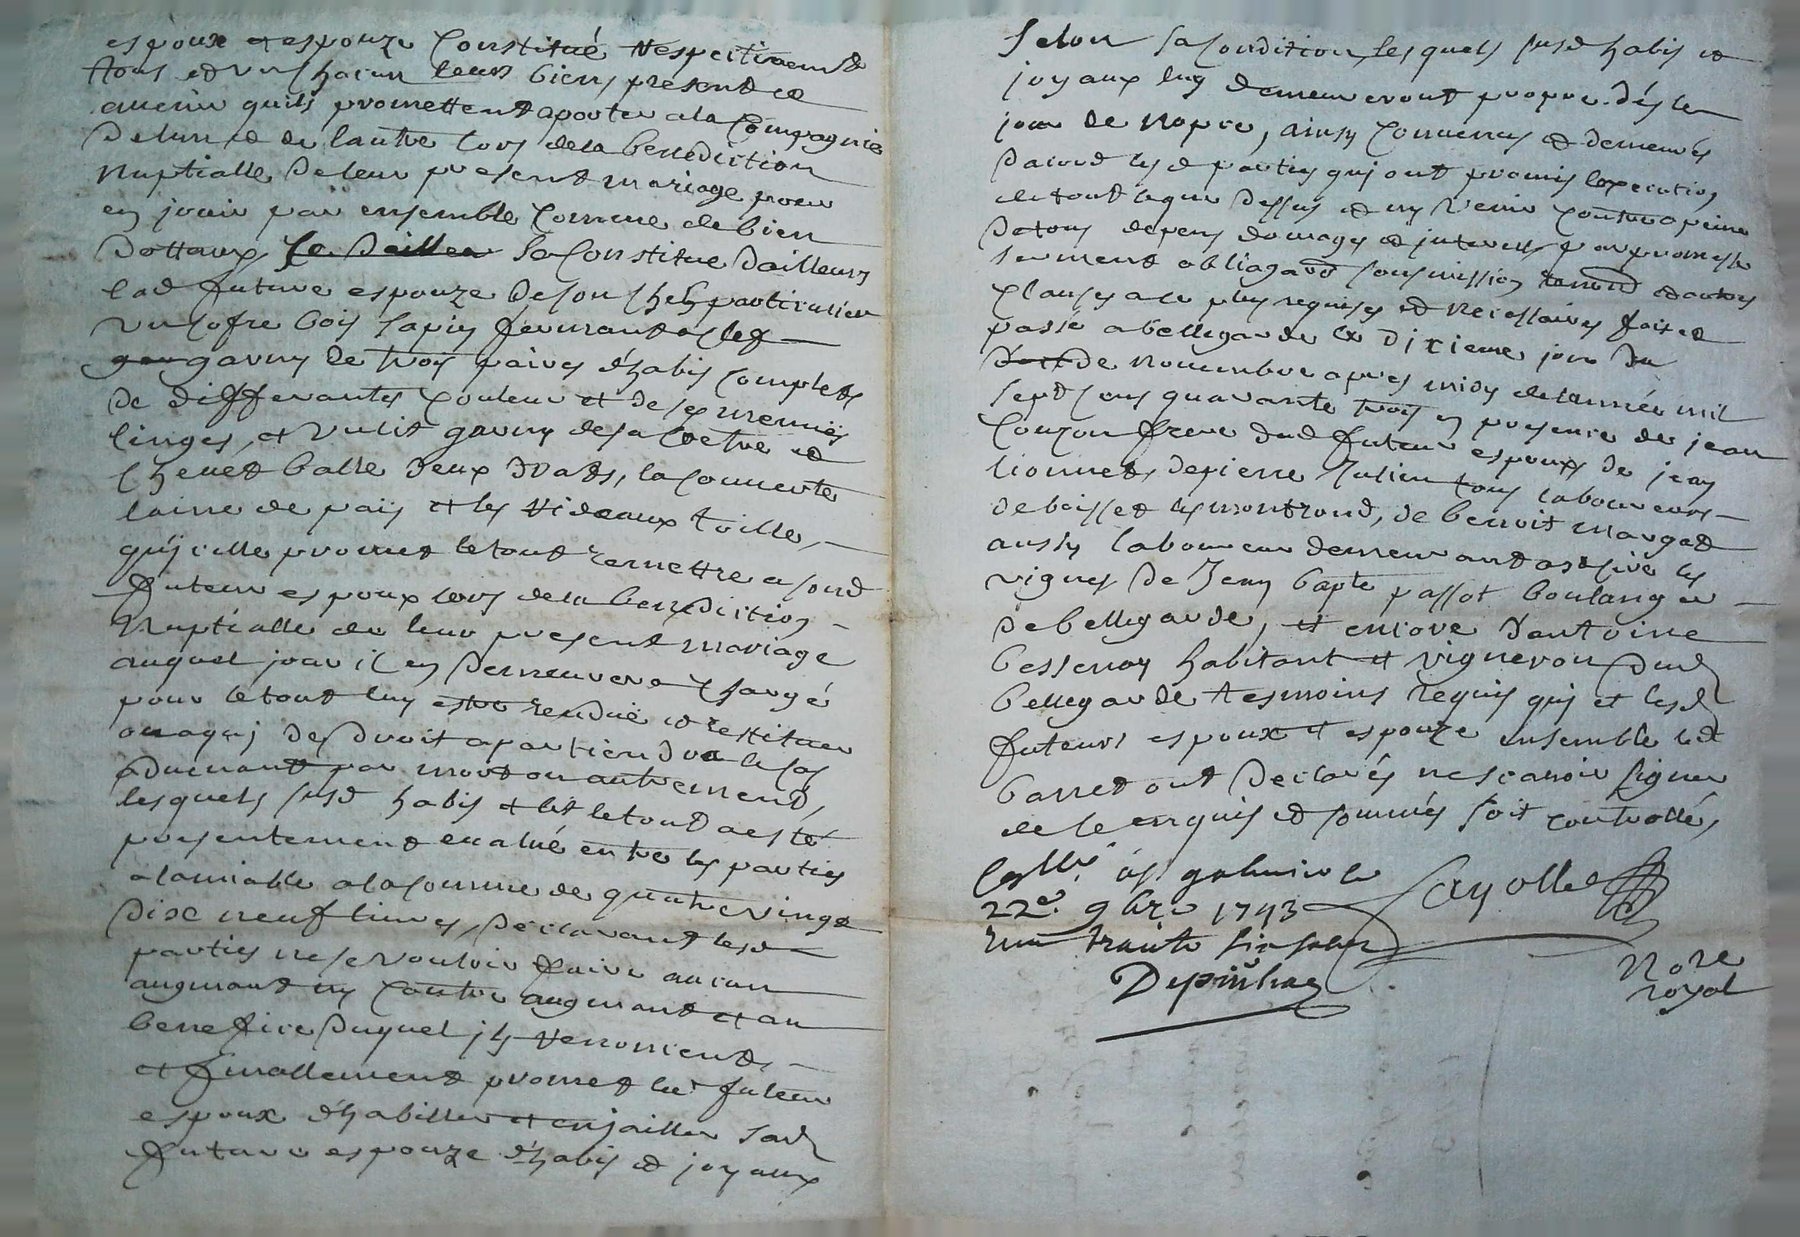 espoux et espouze Constitué respectivemend
tous et un chacun leurs biens presend et
avenir quils promettent aporter a la Compagnie
de lun et de lautre lors de la benediction
nuptialle de leur present mariage pour
en jouir par ensemble comme de bien
dottaux, se dailleu sa Constitue dailleurs
lad future espouze de son chef particulier
un cofre bois sapin fermant a clef
gar garny de trois paires d'habis complets
de differantes couleur et de ses menües
linges, et un lit garny de sa coetre et
chevet balle deux draps, la couverte
laine de païs et les rideaux toille,
qu'icelle promet le tout remettre a sond
futeur espoux lors de la benediction
nuptialle de leur present mariage
auquel jour il en demeurera chargé
pour le tout luy estre rendüe et restituer
ou a qui de droit apartiendra le cas
advenant par mort ou autremend,
lesquels susd habis et lit le tout a esté
presentement evalué entre les parties
a lamiable a la somme de quatre vingt
dix neuf livres, declarant lesd
parties ne se vouloir faire aucun
augmant ny contre augmant et au
benefice duquel ils renoncent,
et finallement promet led futeur
espoux d'habiller et enjailler sad
future espouze d'habis et joyaux
Selon sa condition lesquels susd habis et
joyaux luy demeureront propre dés le
jour de nopce, ainsy convenus et demeurés
dacord lesd parties qui ont promis lexecution
de tout ce que dessus et ny venir contre a peine
de tous depens domages et interests par promesse
serment obligaôn soumission renond et autres
clauses a ce plus requises et necessaires fait et
passé a bellegarde le dixieme jour du
de novembre apres midy de lannée mil
sept cens quarante trois en presence de jean
couzon frere dud futeur espoux de jean
lionnet, de pierre Julien tous laboureurs
de boisset les montrond, de benoit margat
aussy laboureur demeurant a st rivé les
vignes de Jean bapte passot boulanger
de bellegarde, et encore d'antoine
bessenay habitant et vigneron dud
bellegarde tesmoins requis qui et lesd
futeurs espoux et espouze ensemble led
barret ont declarés ne scavoir signer
de ce enquis et sommés soit controllé,
Collé à st galmier le
22e. 9bre 1743
Depinhac
Cayolle
Nore
royal